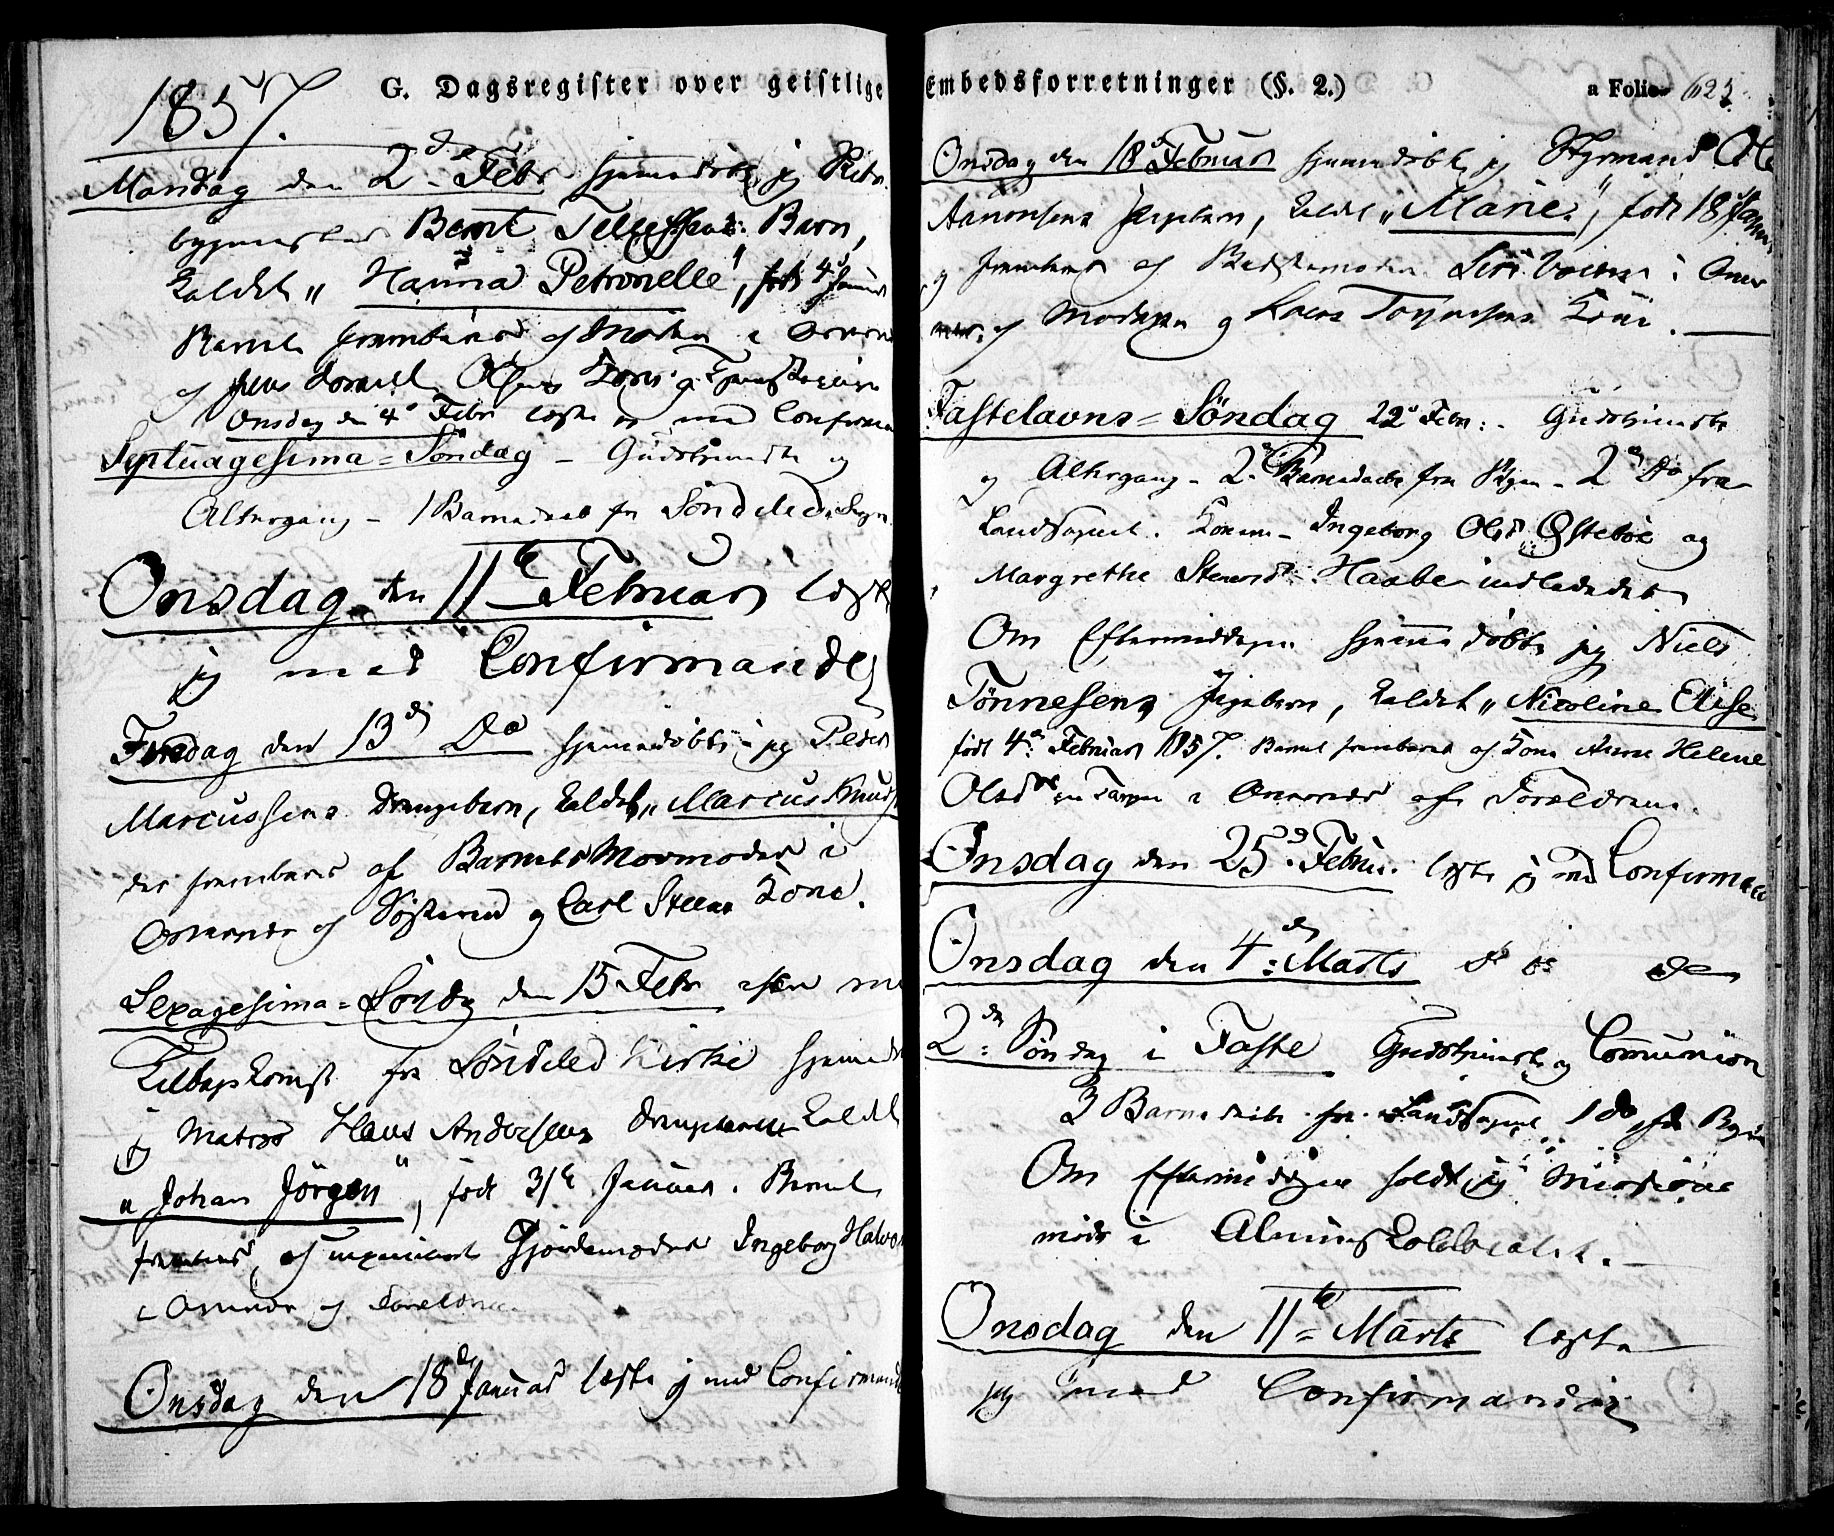 G. Dagsregister over geistlige
1857.
Mandag den 2den Febr hjemmedøbte jeg
bygmester Bernt Tellefsens Barn,
kaldet „Hanna Petronelle", født 4de Januar
Barnet frembåret af Moder i Overvær
af Jens Olsens Kone og
Onsdag den 4de Febr læste jeg med Confirma
Septuagesima=Søndag - Gudstjeneste og
Altergang - 1 Barnedaab fra Søndeled Sogn
Onsdag den 11te Februar læste
jeg med Confirmander
Fredag den 13de Do hjemmedøbte jeg Peder
Marcussens Drengebarn, kaldet „Marcus Knud
der frembares af Barnets Mormoder i
Overvær af og Carl Kone.
Sexagesima=Sønd. den 15 Febr efter m
Tilbagekomst fra Søndeled Kirke hjemmed
jeg Matros Hans Andersens Drengebarn kaldet
„Johan Jörgen", født 31te Januar. Barnet
frembares af Gjordemoder Ingeborg Halvo
i Overvær af Forældrene
Onsdag den 18de Januar læste jeg med Confirmande
Embedsforretninger (§. 2.)
a Folio 623
Onsdag den 18de Februar hjemmedøbte jeg Styrmand Ole
Aanonsens Pigebarn, kaldet „Marie", født 18 Janu
frembaret af Bedstemoder i Over
af Moderen og Kone.
Fastelavns=Søndag 22de Febr: - Gudstjeneste
og Altergang - 2de Barnedaab fra Byen - 2de Do fra
Landsognet. Konen - Ingeborg Olsd Østeböe og
Margrethe Stenersd: Haabe indledede
Om Eftermiddagen hjemmedøbte jeg Niels
Tönnesens Pigebarn, kaldet „Nicoline Elise
født 4de Februar 1857. Barnet frembaret af Kone Anne Helene
Olsd i Overvær af Forældrene.
Onsdag den 25de Febru. læste jeg med Confirman
Onsdag den 4de Marts do do do
2den Søndag i Faste Gudstjeneste og Comunion
3 Barnedaab fra Landsognet, 1 do fra Byen
Om Eftermiddagen holdt jeg Missions
møde i Almueskolelocalet. —
Onsdag den 11te Marts læste
jeg med Confirmander